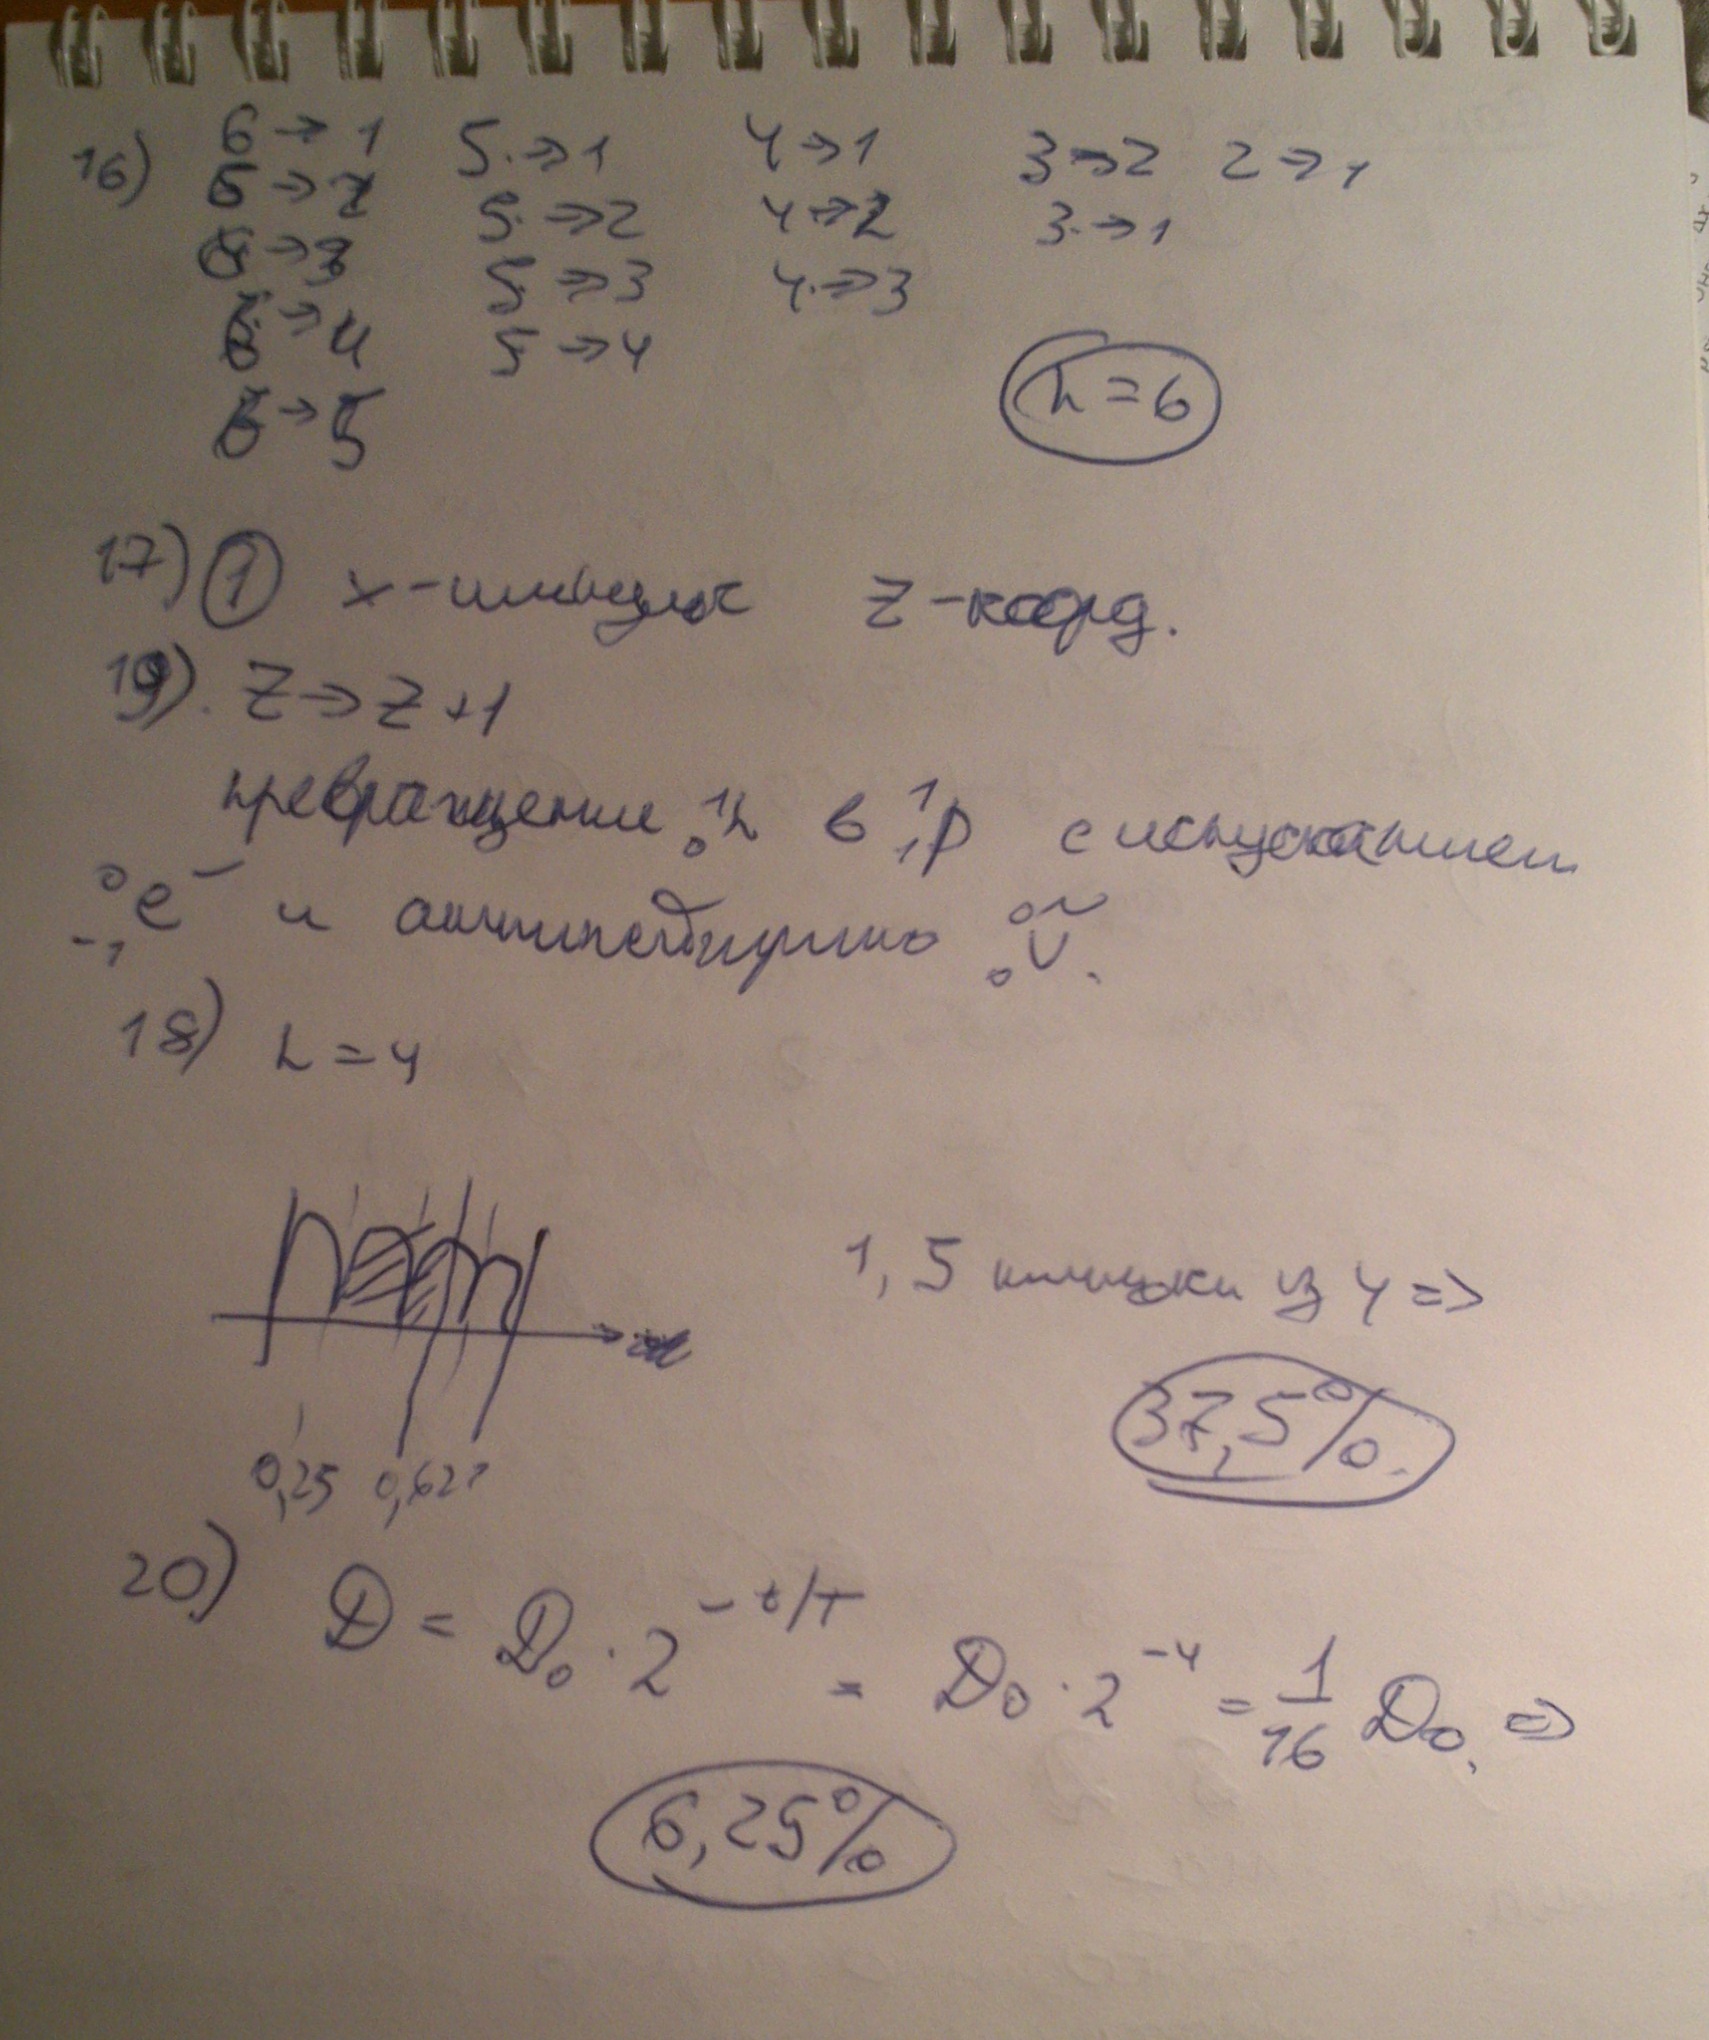 16) 6 → 1 5 → 1 4 → 1 3 → 2 2 → 1
6 → 2 5 → 2 4 → 2 3 → 1
6 → 3 5 → 3 4 → 3
6 → 4 5 → 4
6 → 5
n = 6
17) 1 x – импульс z – коорд.
19). Z → Z + 1
превращение ¹₀n в ¹₁p с испусканием
⁰₋₁e⁻ и антинейтрино ⁰₀ṽ.
18) n = 4
1,5 из 4 =>
37,5%.
0,25 0,625
20) D = D₀ · 2^(-t/T) = D₀ · 2^(-4) = 1/16 D₀. =>
6,25%